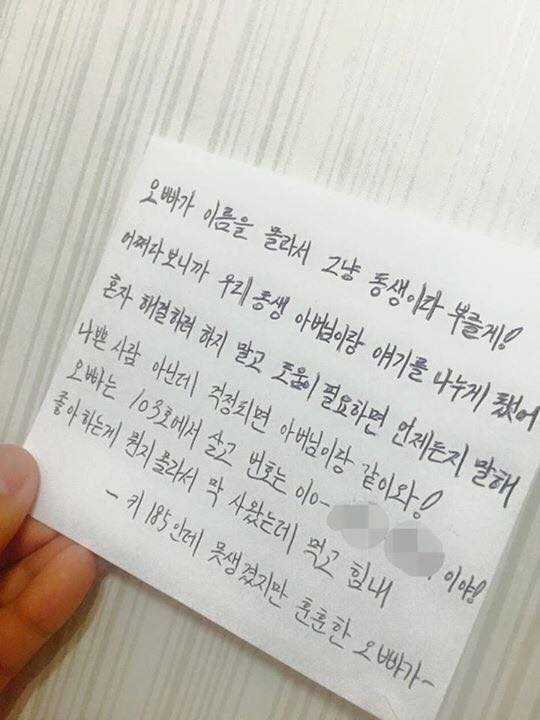 오빠가 이름을 몰라서 그냥 동생이라 부를게!
어쩌다보니까 우리 동생 아버님이랑 얘기를 나누게 됐어
혼자 해결하려 하지 말고 도움이 필요하면 언제든지 말해
나쁜 사람 아닌데 걱정되면 아버님이랑 같이와!
오빠는 103호에서 살고 번호는 010- 이야!
좋아하는게 뭔지 몰라서 막 사왔는데 먹고 힘내
- 키 185인데 못생겼지만 훈훈한 오빠가 -